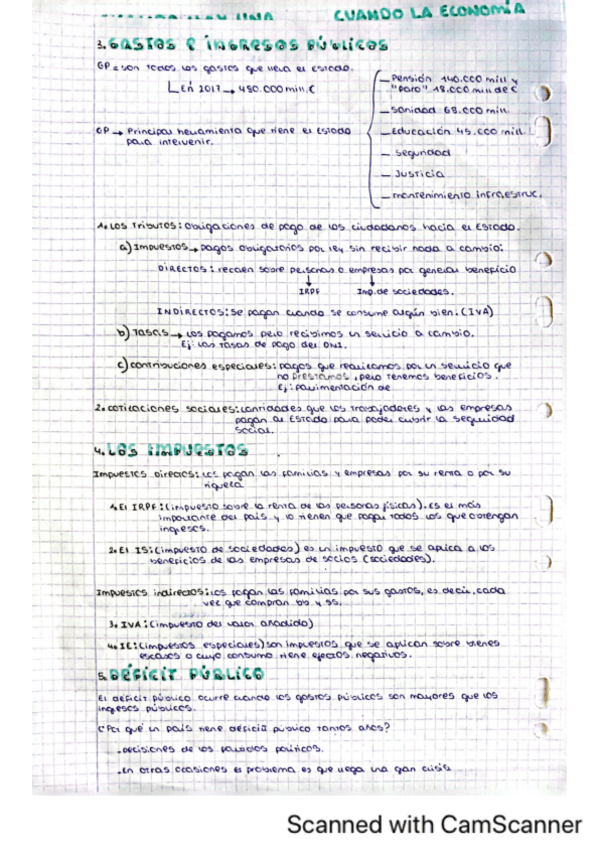 CUANDO LA ECONOMÍA
3. GASTOS E INGRESOS PÚBLICOS
GP = son todos los gastos que lleva el Estado.
En 2017 → 450.000 mill. €
GP → Principal herramienta que tiene el Estado
para intervenir.
— Pensión 140.000 mill y
"paro" 18.000 mill de €
— Sanidad 68.000 mill.
— Educación 45.000 mill.
— Seguridad
— Justicia
— mantenimiento infraestruc.
1. Los Tributos: Obligaciones de pago de los ciudadanos hacia el Estado.
a) Impuestos → pagos obligatorios por ley sin recibir nada a cambio:
DIRECTOS: recaen sobre personas o empresas por generar beneficio
IRPF Imp. de sociedades.
INDIRECTOS: Se pagan cuando se consume algún bien. (IVA)
b) TASAS → Los pagamos pero recibimos un servicio a cambio.
Ej: Las tasas de pago del DNI.
c) contribuciones especiales: pagos que realizamos por un servicio que
no prestamos, pero tenemos beneficios.
Ej: pavimentación de
2. cotizaciones sociales: cantidades que los trabajadores y las empresas
pagan al Estado para poder cubrir la seguridad
social.
4. LOS IMPUESTOS
Impuestos directos: Los pagan las familias y empresas por su renta o por su
riqueza
1. El IRPF: (impuesto sobre la renta de las personas físicas). Es el más
importante del país y lo tienen que pagar todos los que obtengan
ingresos.
2. El IS: (impuesto de sociedades) es un impuesto que se aplica a los
beneficios de las empresas de socios (sociedades).
Impuestos indirectos: Los pagan las familias por sus gastos, es decir, cada
vez que compran bb y ss.
3. IVA: (impuesto del valor añadido)
4. IE: (impuestos especiales) son impuestos que se aplican sobre bienes
escasos o cuyo consumo tiene efectos negativos.
5. DÉFICIT PÚBLICO
El déficit público ocurre cuando los gastos públicos son mayores que los
ingresos públicos.
¿Por qué un país tiene déficit público tantos años?
. Decisiones de los partidos políticos.
. En otras ocasiones el problema es que llega una gran crisis
Scanned with CamScanner